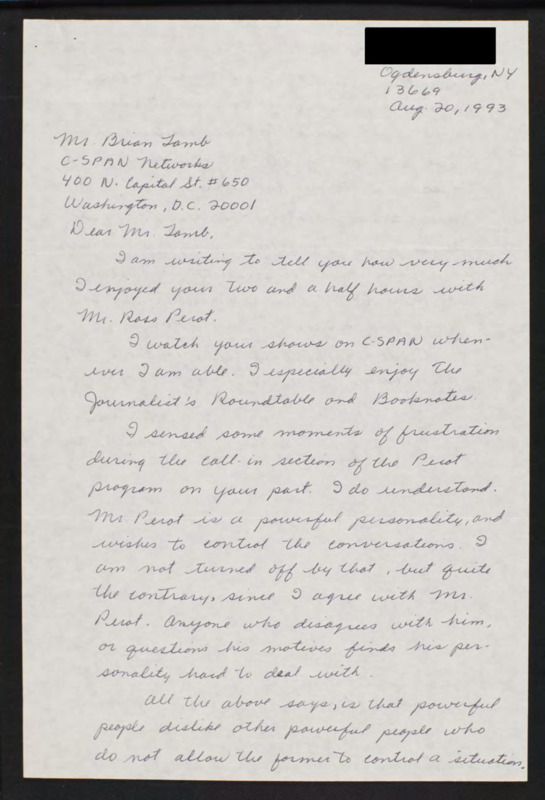 Ogdensburg, NY
13669
Aug. 20, 1993
Mr. Brian Lamb
C-SPAN Networks
400 N. Capital St. #650
Washington, D.C. 20001
Dear Mr. Lamb,
I am writing to tell you how very much
I enjoyed your two and a half hours with
Mr. Ross Perot.
I watch your shows on C-SPAN when-
ever I am able. I especially enjoy the
Journalist's Roundtable and Booknotes.
I sensed some moments of frustration
during the call-in section of the Perot
program on your part. I do understand.
Mr. Perot is a powerful personality, and
wishes to control the conversations. I
am not turned off by that, but quite
the contrary, since I agree with Mr.
Perot. Anyone who disagrees with him,
or questions his motives finds his per-
sonality hard to deal with.
All the above says, is that powerful
people dislike other powerful people who
do not allow the former to control a situation.